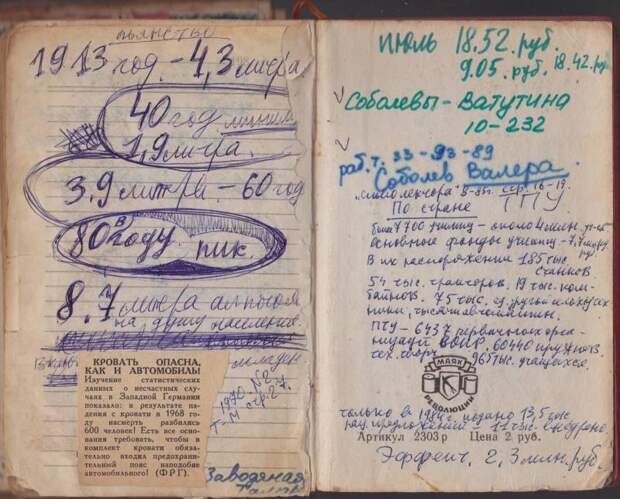 пьянство
1913 год. - 4,3 литра
40 год
1,9 литра.
3,9 литра - 60 год
80 в году. пик.
8.7 литра алкоголя
на душу населения.
КРОВАТЬ ОПАСНА,
КАК И АВТОМОБИЛЬ!
Изучение статистических
данных о несчастных слу-
чаях в Западной Германии
показало: в результате па-
дения с кровати в 1968 го-
ду насмерть разбились
600 человек! Есть все осно-
вания требовать, чтобы в
комплект кровати обяза-
тельно входил предохрани-
тельный пояс наподобие
автомобильного! (ФРГ).
1970 №2
Т-М стр. 27.
Заводская
ИЮЛЬ 18.52. руб.
9.05. руб. 18.42. руб
Соболевы - Ватутина
10-232
раб. т. 33-93-89
Соболев Валера.
стр. 16-19.
По стране
7700 училищ - около 4 млн.
Основные фонды училищ - 7,7 млрд. руб
В их распоряжении 185 тыс.
станков
54 тыс. тракторов. 19 тыс. ком-
байнов. 75 тыс.
ПТУ - 6437 первичных орга-
низаций ВОИР. 60440 кружков
тех. творч 965 тыс. учащихся.
МАЯК
РЕВОЛЮЦИИ
только в 1984г. подано 13,5 тыс
рац. предложений - 11 тыс. внедрено.
Артикул 2303 р Цена 2 руб.
Эффект. 2,3 млн. руб